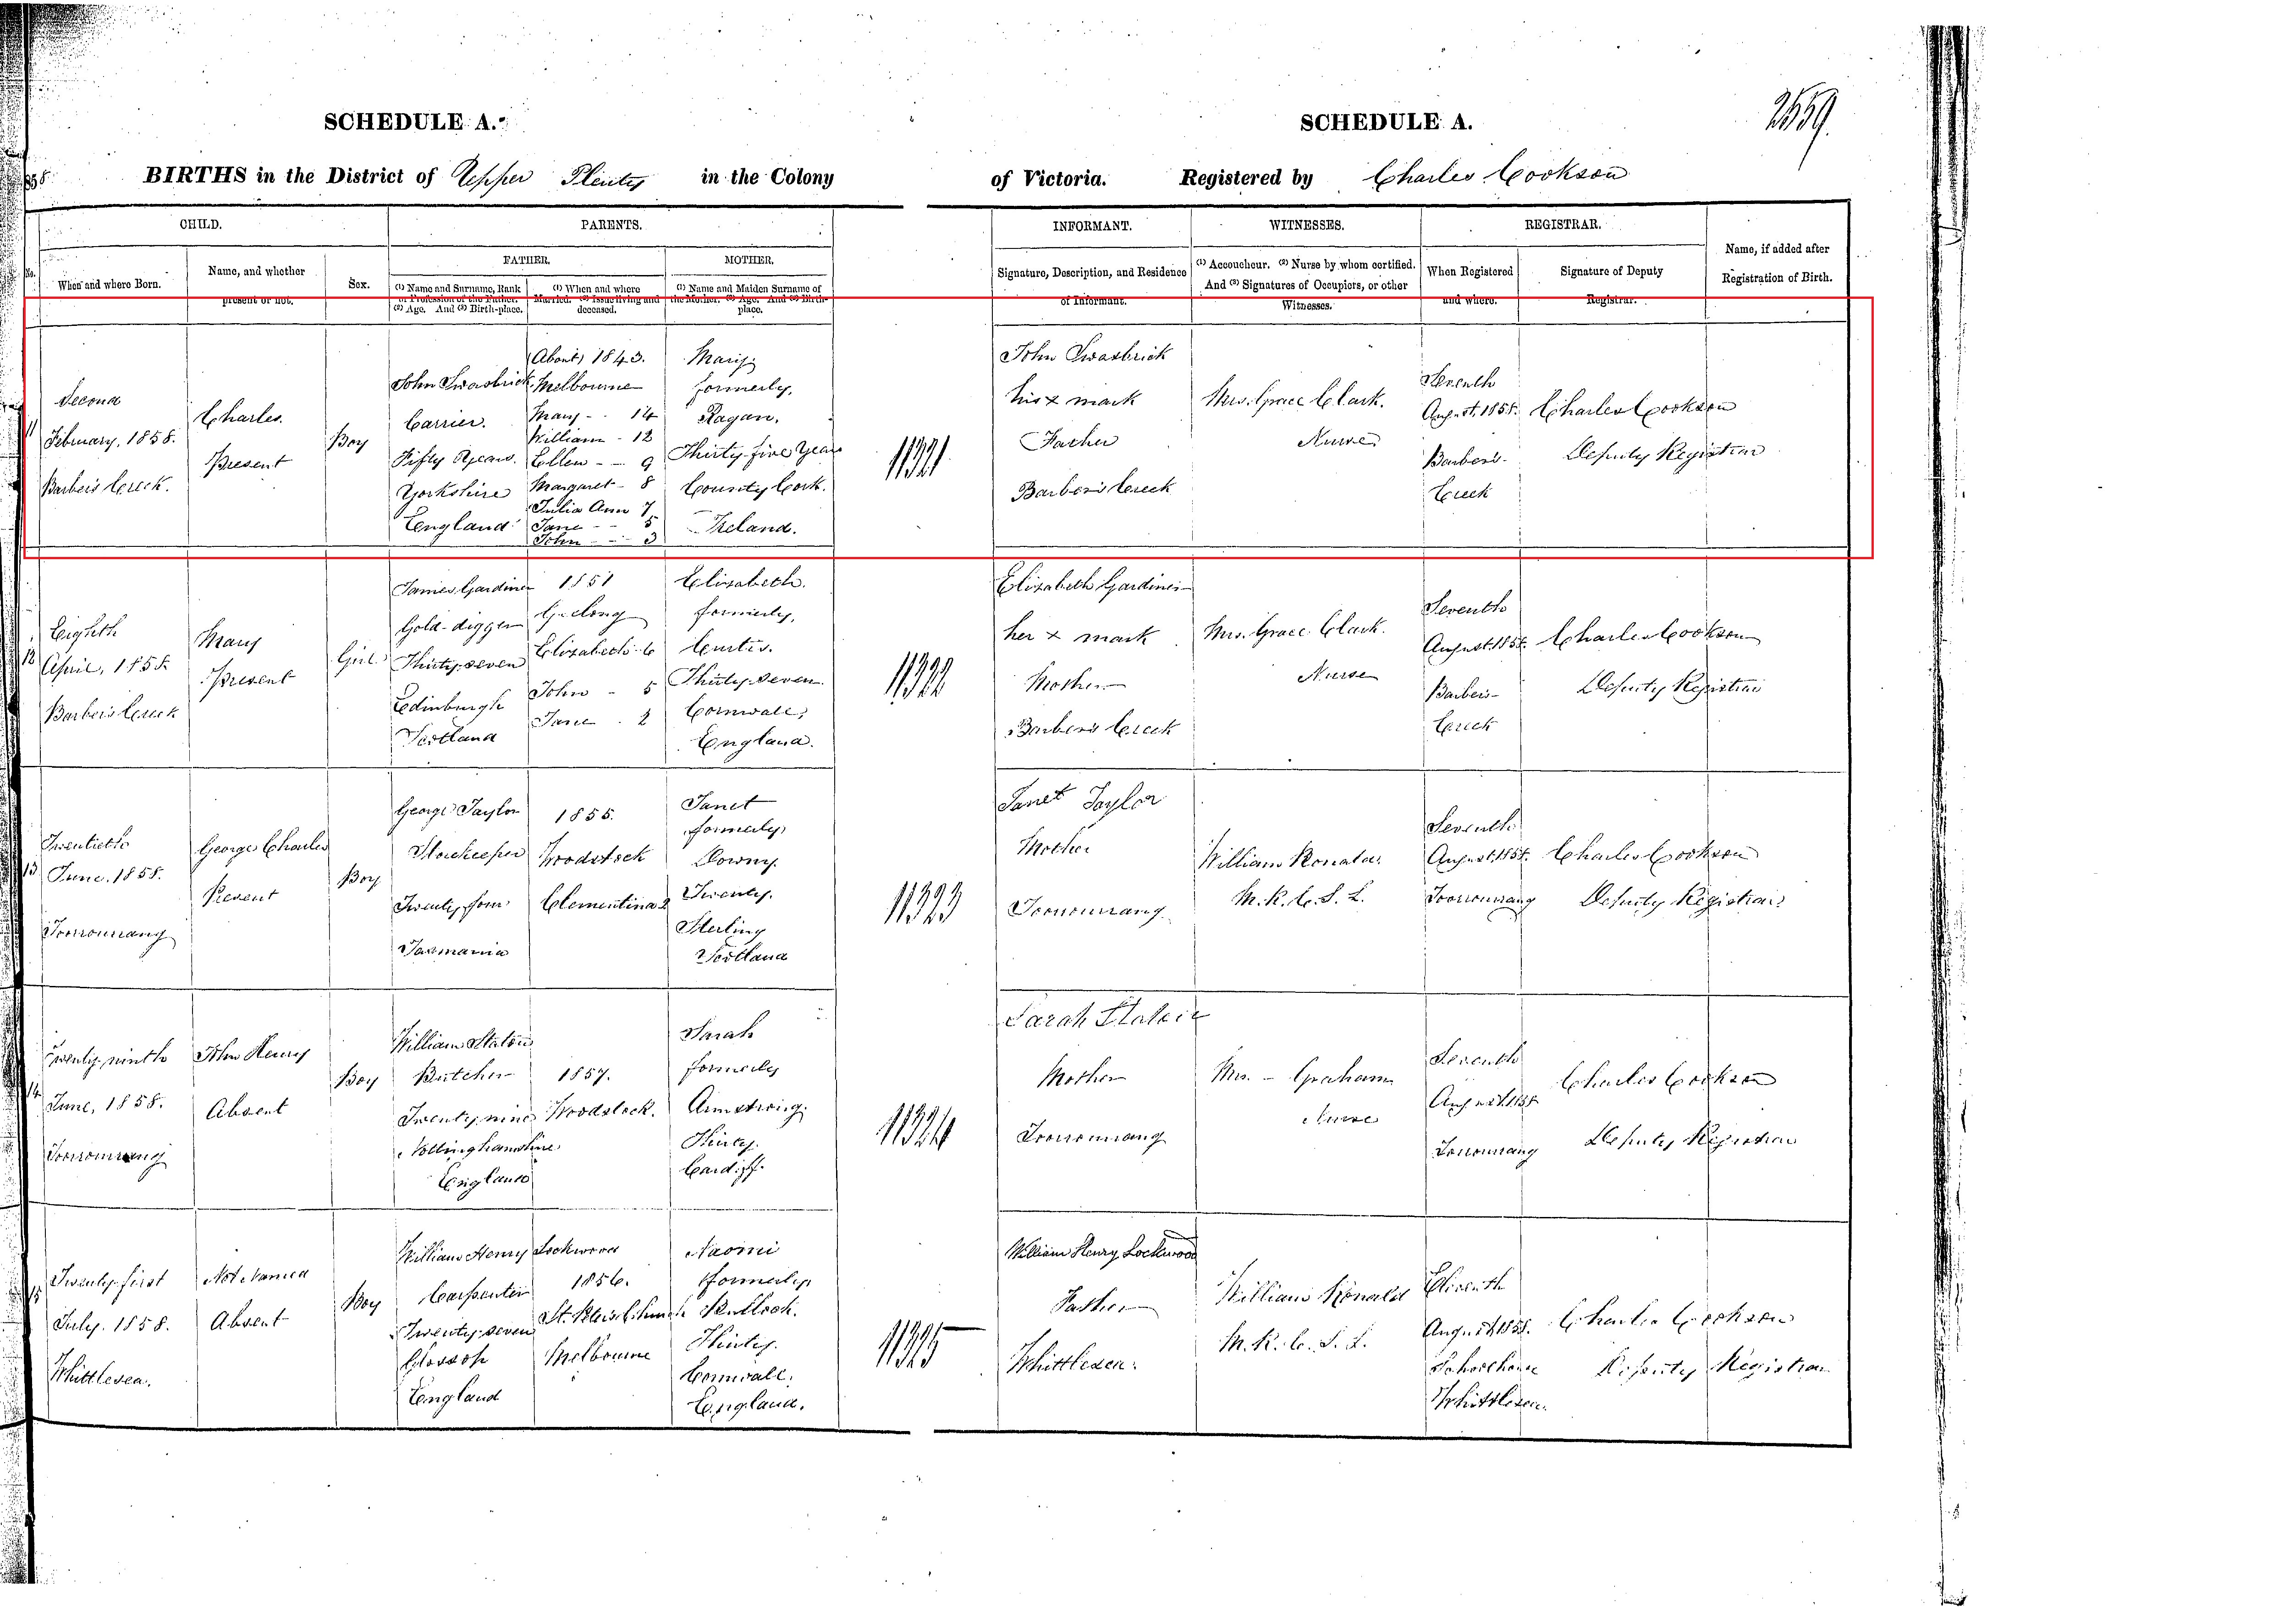 2559
SCHEDULE A.
SCHEDULE A.
BIRTHS in the District of Upper Plenty in the Colony
of Victoria. Registered by Charles Cookson
CHILD.
PARENTS.
INFORMANT.
WITNESSES.
REGISTRAR.
Name, if added after Registration of Birth.
FATHER.
MOTHER.
No.
When and where Born.
Name, and whether present or not.
Sex.
(1) Name and Surname, Rank or Profession of the Father. (2) Age. And (3) Birth-place.
(1) When and where Married. (2) Issue living and deceased.
(1) Name and Maiden Surname of the Mother. (2) Age. And (3) Birth-place.
Signature, Description, and Residence of Informant.
(1) Accoucheur. (2) Nurse by whom certified. And (3) Signatures of Occupiers, or other Witnesses.
When Registered and where.
Signature of Deputy Registrar.
11
Second
February, 1858.
Barbers Creek.
Charles.
Present
Boy
John Swasbrick
Carrier.
Fifty Years.
Yorkshire
England
About 1843.
Melbourne
Mary - - 14
William - 12
Ellen - - 9
Margaret - 8
Julia Ann 7
Jane - - 5
John - - 3
Mary
formerly,
Ragan.
Thirty five Years
County Cork.
Ireland.
11321
John Swasbrick
his x mark
Father
Barbers Creek
Mrs. Grace Clark.
Nurse
Seventh
August, 1858.
Barbers-
Creek
Charles Cookson
Deputy Registrar
12
Eighth
April, 1858.
Barbers Creek
Mary
Present
Girl
James Gardiner
Gold-digger
Thirty-seven
Edinburgh
Scotland
1851
Geelong
Elizabeth 6
John - 5
Jane - 2
Elizabeth.
formerly,
Curtis.
Thirty-seven
Cornwall,
England.
11322
Elizabeth Gardiner
her x mark
Mother
Barbers Creek
Mrs. Grace Clark.
Nurse
Seventh
August 1858.
Barbers-
Creek
Charles Cookson
Deputy Registrar
13
Twentieth
June. 1858.
George Charles
Present
Boy
George Taylor
Storekeeper
Twenty four
Tasmania
1855.
Woodstock
Clementina 2
Janet
formerly,
Downy.
Twenty.
Sterling
Scotland
11323
Janet Taylor
Mother
William Ronald.
M.R.C.S.L.
Seventh
August 1858.
Charles Cookson
Deputy Registrar
14
Twenty-ninth
June, 1858.
John Henry
Absent
Boy
William Staton
Butcher
Twenty nine
Nottinghamshire
England
1857.
Woodstock.
Sarah
formerly
Armstrong.
Thirty.
Cardiff.
11324
Sarah
Mother
Mrs. - Graham
Nurse
Seventh
August 1858
Charles Cookson
Deputy Registrar
15
Twenty-first
July. 1858.
Whittlesea.
Not Named
Absent
Boy
William Henry Lockwood
Carpenter
Twenty-seven
Glossop
England
1856.
St. Peters Church
Melbourne
Naomi
formerly
Thirty.
Cornwall.
England.
11325
William Henry Lockwood
Father
Whittlesea.
William Ronald
M.R.C.S.L.
Eleventh
August 1858.
Schoolhouse
Whittlesea.
Charles Cookson
Deputy Registrar